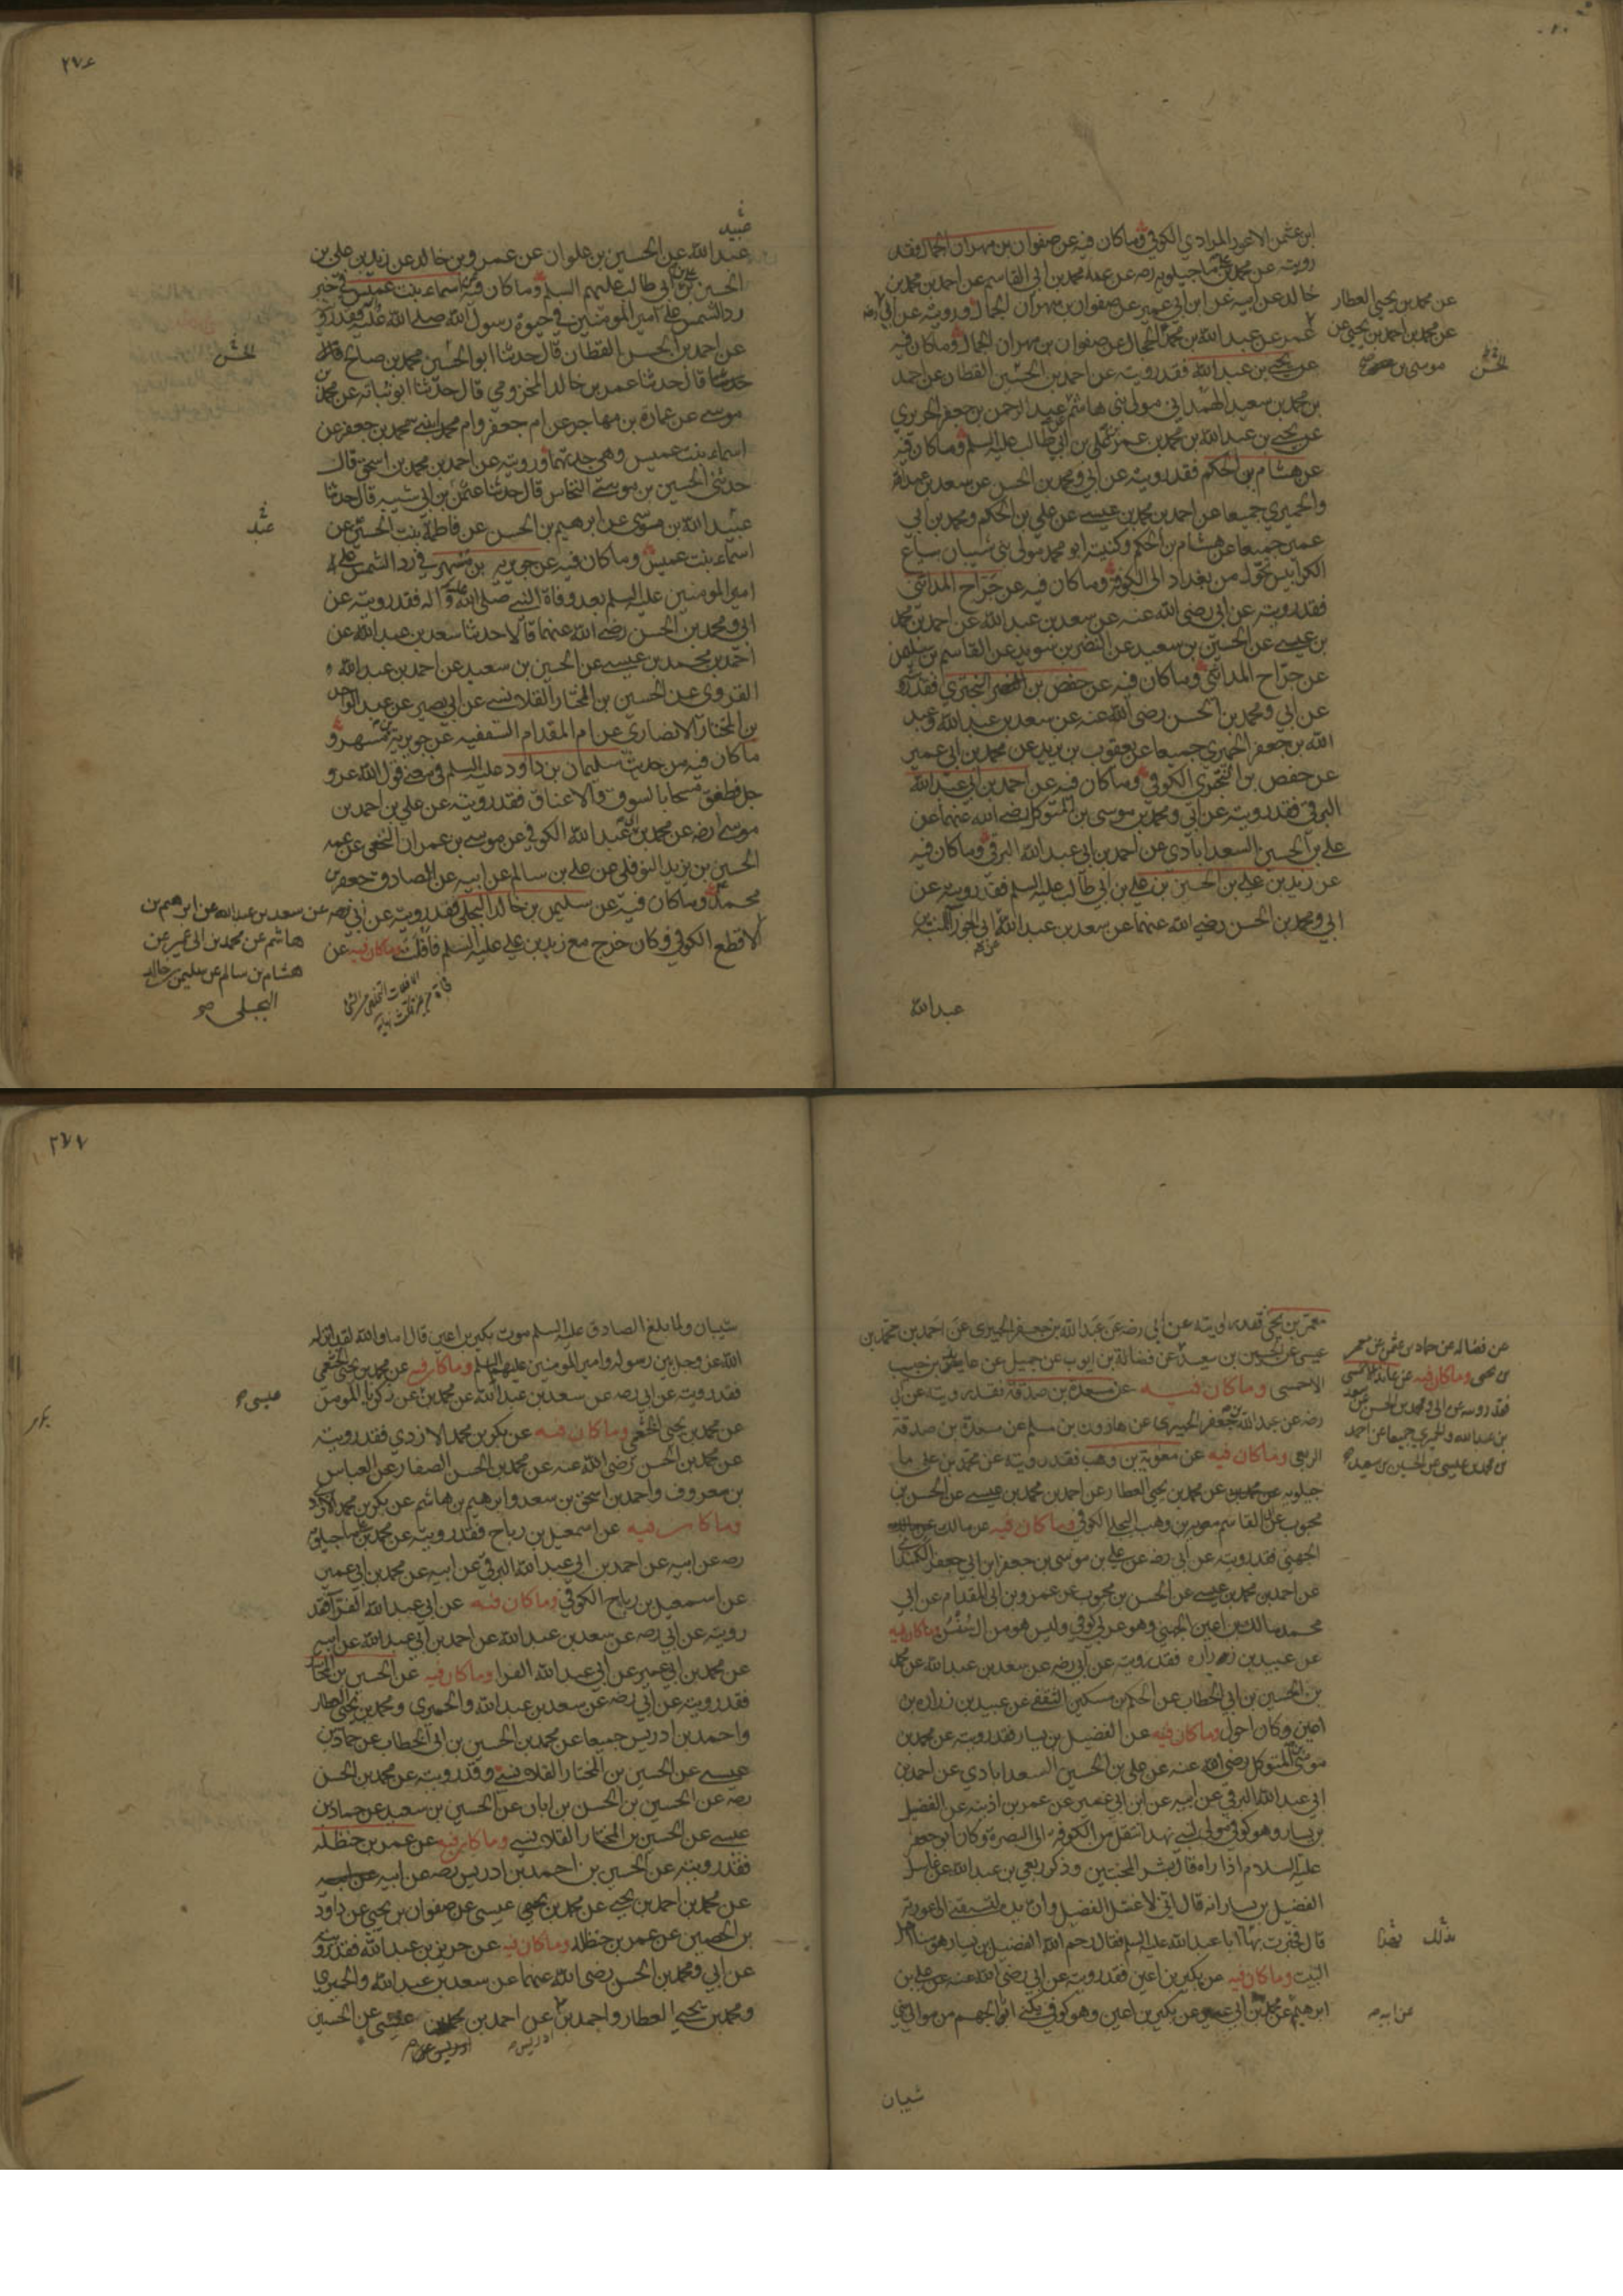 ابن عثمن الاعور المرادي الكوفي وما كان فيه عن صفوان بن مهران الجمال فقد
رويته عن محمد بن علي ماجيلويه رضه عن عمه محمد بن ابي القاسم عن احمد بن محمد بن
خالد عن ابيه عن ابن ابي عمير عن صفوان بن مهران الجمال ورويته عن ابي رضه
عن محمد بن يحيى العطار
عن محمد بن احمد بن يحيى عن
موسى بن
عمر عن عبد الله بن محمد الحجال عن صفوان بن مهران الجمال وما كان فيه
عن يحيى بن عبد الله فقد رويته عن احمد بن الحسين القطان عن احمد
بن محمد بن سعيد الهمداني مولى بني هاشم عن عبد الرحمن بن جعفر الحريري
عن يحيى بن عبد الله بن محمد بن عمر بن علي بن ابي طالب عليه السلم وما كان فيه
عن هشام بن الحكم فقد رويته عن ابي ومحمد بن الحسن عن سعد بن عبد الله
والحميري جميعا عن احمد بن محمد بن عيسى عن علي بن الحكم ومحمد بن ابي
عمير جميعا عن هشام بن الحكم وكنيته ابو محمد مولى بني شيبان بياع
الكرابيس تحول من بغداد الى الكوفة وما كان فيه عن جراح المدائني
فقد رويته عن ابي رضي الله عنه عن سعد بن عبد الله عن احمد بن محمد
بن عيسى عن الحسين بن سعيد عن النضر بن سويد عن القاسم بن سليمن
عن جراح المدائني وما كان فيه عن حفص بن البختري فقد رويته
عن ابي ومحمد بن الحسن رضي الله عنه عن سعد بن عبد الله وعبد
الله بن جعفر الحميري جميعا عن يعقوب بن يزيد عن محمد بن ابي عمير
عن حفص بن البختري الكوفي وما كان فيه عن احمد بن ابي عبد الله
البرقي فقد رويته عن ابي ومحمد بن موسى بن المتوكل رضي الله عنهما عن
علي بن الحسين السعدابادي عن احمد بن ابي عبد الله البرقي وما كان فيه
عن زيد بن علي بن الحسين بن علي بن ابي طالب عليه السلم فقد رويته عن
ابي ومحمد بن الحسن رضي الله عنهما عن سعد بن عبد الله عن ابي الجوزا المنبه بن
عبد الله
٢٧٦
عبيد
عبد الله عن الحسين بن علوان عن عمرو بن خالد عن زيد بن علي بن
الحسين بن علي بن ابي طالب عليهم السلم وما كان فيه عن اسماء بنت عميس في خبر
رد الشمس على امير المؤمنين في حيوة رسول الله صلى الله عليه فقد رويته
عن احمد بن الحسن القطان قال حدثنا ابو الحسين محمد بن صالح قال
الحسن
حدثنا قال حدثنا عمر بن خالد المخزومي قال حدثنا ابو نباته عن محمد بن
موسى عن عمارة بن مهاجر عن ام جعفر وام محمد ابنتي محمد بن جعفر عن
اسماء بنت عميس وهي جدتهما ورويته عن احمد بن محمد بن اسحق قال
حدثني الحسين بن موسى النخاس قال حدثنا عثمن بن ابي شيبه قال حدثنا
عبيد الله بن موسى عن ابرهيم بن الحسن عن فاطمة بنت الحسين عن
عبد
اسماء بنت عميس وما كان فيه عن جويريه بن مسهر في رد الشمس على
امير المومنين عليه السلم بعد وفاة النبي صلى الله عليه وآله فقد رويته عن
ابي ومحمد بن الحسن رضي الله عنهما قالا حدثنا سعد بن عبد الله عن
احمد بن محمد بن عيسى عن الحسين بن سعيد عن احمد بن عبد الله
القروي عن الحسين بن المختار القلانسي عن ابي بصير عن عبد الواحد
بن المختار الانصاري عن ام المقدام الثقفيه عن جويرية بن مسهر و
ما كان فيه من حديث سليمان بن داود عليه السلم في معنى قول الله عز و
جل فطفق مسحا بالسوق والاعناق فقد رويته عن علي بن احمد بن
موسى رضه عن محمد بن ابي عبد الله الكوفي عن موسى بن عمران النخعي عن عمه
الحسين بن يزيد النوفلي عن علي بن سالم عن ابيه عن الصادق جعفر بن
محمد وما كان فيه عن سليمن بن خالد البجلي فقد رويته عن ابي رضه عن سعد بن عبد الله عن ابرهيم بن
هاشم عن محمد بن ابي عمير عن
هشام بن سالم عن سليمن بن خالد
البجلي صح
الاقطع الكوفي وكان خرج مع زيد بن علي عليه السلم فافلت وما كان فيه عن
معمر بن يحيى فقد رويته عن ابي رضه عن عبد الله بن جعفر الحميري عن احمد بن محمد بن
عيسى عن الحسين بن سعيد عن فضالة بن ايوب عن جميل عن عايذ بن حبيب
الاحمسي وما كان فيه عن مسعدة بن صدقة فقد رويته عن ابي
رضه عن عبد الله بن جعفر الحميري عن هارون بن مسلم عن مسعدة بن صدقة
الربعي وما كان فيه عن معوية بن وهب فقد رويته عن محمد بن علي ما
عن فضاله عن حماد بن عثمن عن معمر
بن يحيى وما كان فيه عن عائذ الاحمسي
فقد رويته عن ابي ومحمد بن الحسن عن سعد
بن عبد الله والحميري جميعا عن احمد
بن محمد بن عيسى عن الحسين بن سعيد
جيلويه عن محمد بن يحيى العطار عن احمد بن محمد بن عيسى عن الحسن بن
محبوب عن ابي القاسم معوية بن وهب البجلي الكوفي وما كان فيه عن مالك
الجهني فقد رويته عن ابي رضه عن علي بن موسى بن جعفر ابن ابي جعفر الكمنداني
عن احمد بن محمد بن عيسى عن الحسن بن محبوب عن عمرو بن ابي المقدام عن ابي
محمد مالك بن اعين الجهني وهو عربي كوفي وليس هو من ال سنسن وما كان فيه
عن عبيد بن زراره فقد رويته عن ابي رضه عن سعد بن عبد الله عن محمد
بن الحسين بن ابي الخطاب عن الحكم بن مسكين الثقفي عن عبيد بن زراره بن
اعين وكان احول وما كان فيه عن الفضيل بن يسار فقد رويته عن محمد بن
موسى بن المتوكل رضي الله عنه عن علي بن الحسين السعدابادي عن احمد بن
ابي عبد الله البرقي عن ابيه عن ابن ابي عمير عن عمر بن اذينه عن الفضيل
بن يسار وهو كوفي مولى لبني نهد انتقل من الكوفة الى البصرة وكان ابو جعفر
عليه السلام اذا راه قال بشر المخبتين وذكر ربعي بن عبد الله عن غاسل
الفضيل بن يسار انه قال اني لاغسل الفضيل وان يده لتسبقني الى عورته
قال فخبرت بهذا ابا عبد الله عليه السلم فقال رحم الله الفضيل بن يسار هو منا اهل
بذلك
البيت وما كان فيه عن بكير بن اعين فقد رويته عن ابي رضي الله عنه عن علي بن
ابرهيم عن محمد بن ابي عمير عن بكير بن اعين وهو كوفي يكنى ابا الجهم من موالي بني
عن ابيه
شيبان
٢٧٧
شيبان ولما بلغ الصادق عليه السلم موت بكير بن اعين قال اما والله لقد انزله
الله عز وجل بين رسوله وامير المومنين عليهما السلم وما كان فيه عن محمد بن يحيى الخثعمي
فقد رويته عن ابي رضه عن سعد بن عبد الله عن محمد بن عن زكريا المومن
عيسى
عن محمد بن يحيى الخثعمي وما كان فيه عن بكر بن محمد الازدي فقد رويته
عن محمد بن الحسن رضي الله عنه عن محمد بن الحسن الصفار عن العباس
بن معروف واحمد بن اسحق بن سعد وابرهيم بن هاشم عن بكر بن محمد الازدي
وما كان فيه عن اسمعيل بن رباح فقد رويته عن محمد بن علي ماجيلويه
رضه عن ابيه عن احمد بن ابي عبد الله البرقي عن ابيه عن محمد بن ابي عمير
عن اسمعيل بن رباح الكوفي وما كان فيه عن ابي عبد الله الفرا فقد
رويته عن ابي رضه عن سعد بن عبد الله عن احمد بن ابي عبد الله عن ابيه
عن محمد بن ابي عمير عن ابي عبد الله الفرا وما كان فيه عن الحسين بن المختار
فقد رويته عن ابي رضه عن سعد بن عبد الله والحميري ومحمد بن يحيى العطار
واحمد بن ادريس جميعا عن محمد بن الحسين بن ابي الخطاب عن حماد بن
عيسى عن الحسين بن المختار القلانسي وقد رويته عن محمد بن الحسن
رضه عن الحسين بن الحسن بن ابان عن الحسين بن سعيد عن حماد بن
عيسى عن الحسين بن المختار القلانسي وما كان فيه عن عمر بن حنظله
فقد رويته عن الحسين بن احمد بن ادريس رضه عن ابيه
عن محمد بن احمد بن يحيى عن محمد بن عيسى عن صفوان بن يحيى عن داود
بن الحصين عن عمر بن حنظله وما كان فيه عن حريز بن عبد الله فقد رويته
عن ابي ومحمد بن الحسن رضي الله عنهما عن سعد بن عبد الله والحميري
ومحمد بن يحيى العطار واحمد بن عن احمد بن محمد بن عيسى عن الحسين
ادريس